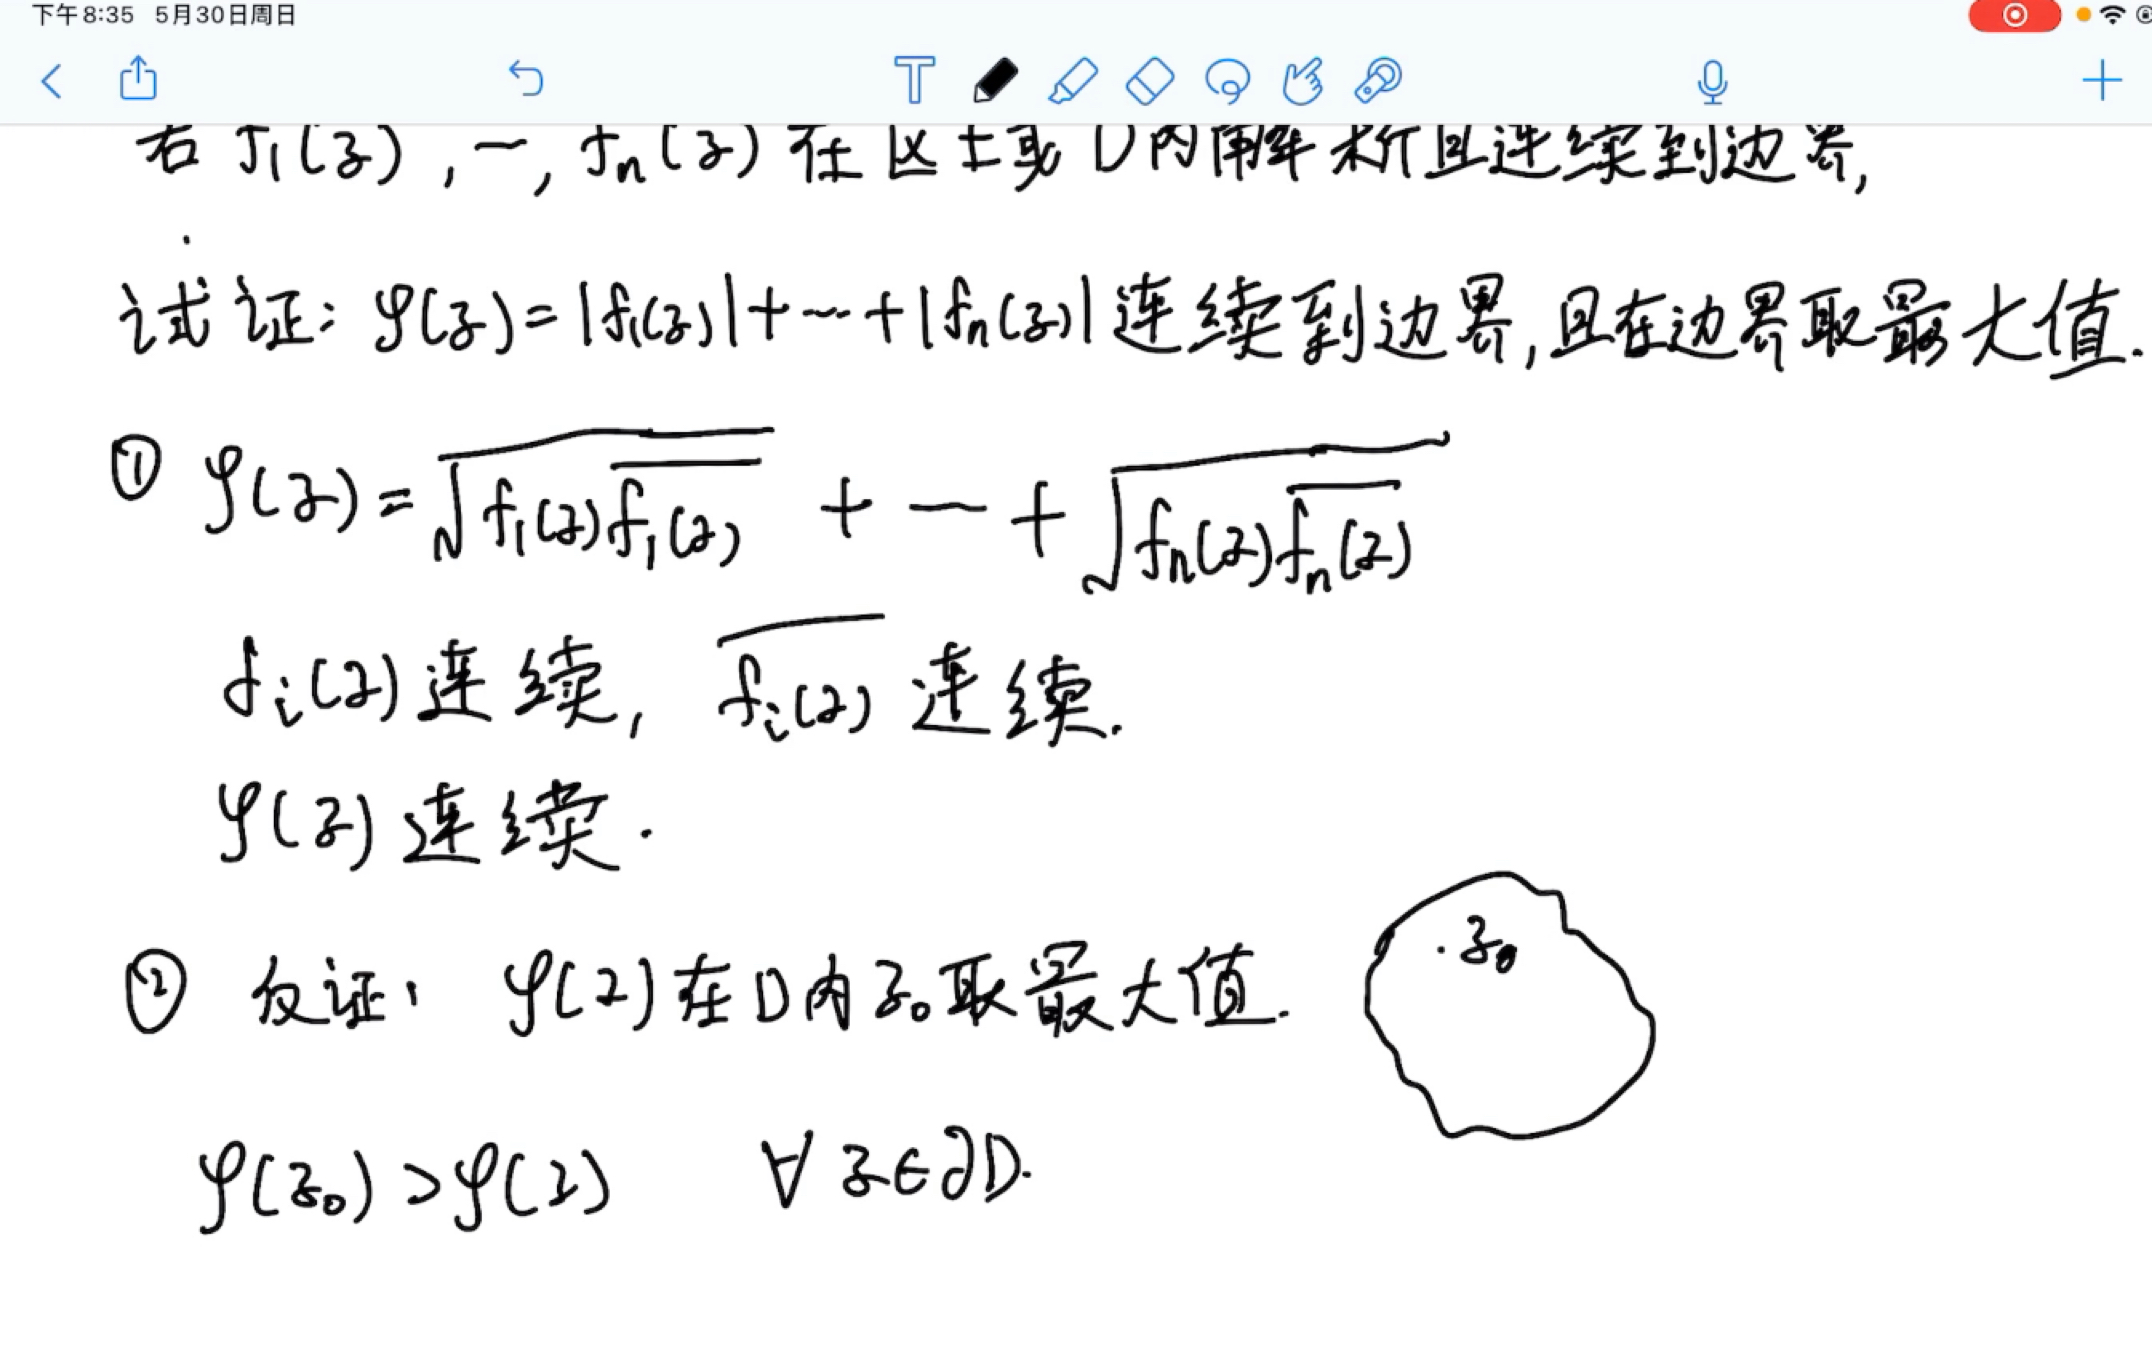 下午8:35 5月30日周日
T
若 f₁(z), …, fₙ(z) 在区域 D内解析且连续到边界,
试证: φ(z)=|f₁(z)|+…+|fₙ(z)| 连续到边界,且在边界取最大值.
① φ(z)=√(f₁(z)f̅₁̅(̅z̅)̅) + … + √(fₙ(z)f̅ₙ̅(̅z̅)̅)
fᵢ(z)连续, f̅ᵢ̅(̅z̅)̅ 连续.
φ(z)连续.
·z₀
② 反证: φ(z)在D内z₀取最大值.
φ(z₀)>φ(z) ∀ z∈∂D.